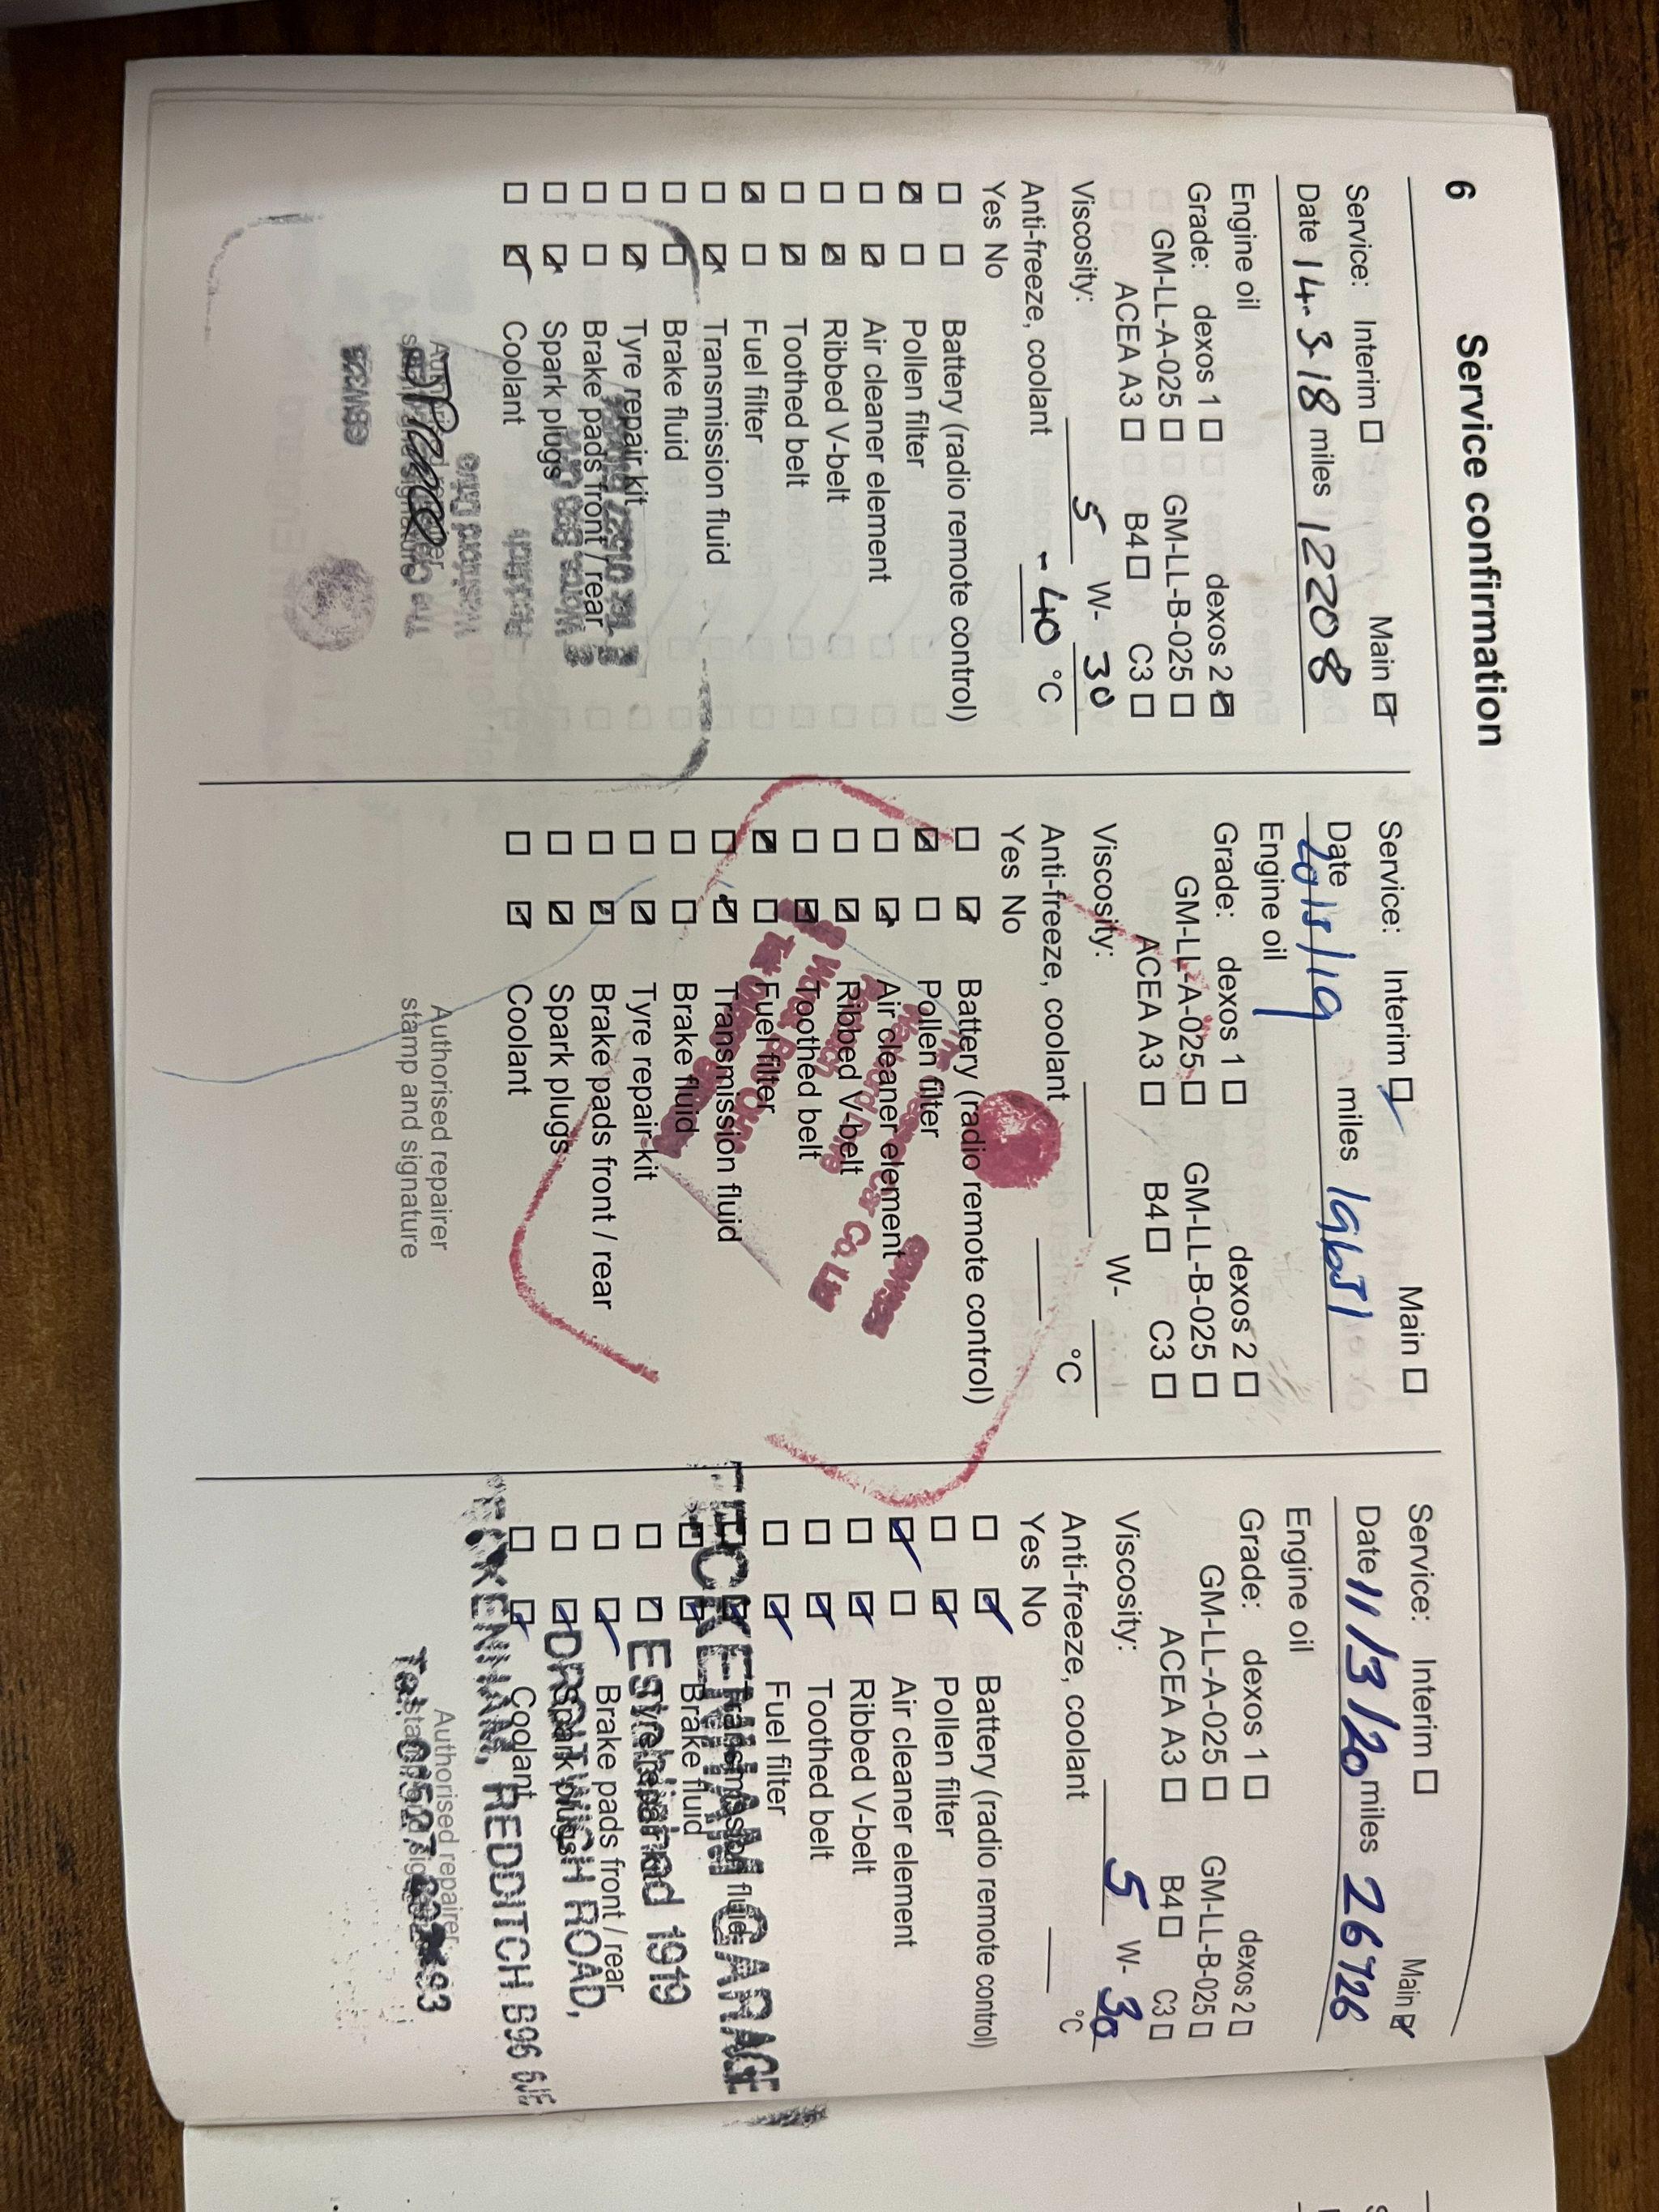 6
Service confirmation
Service: Interim ☐ Main ☑
Date 14.3.18 miles 12208
Engine oil
Grade: dexos 1 ☐ dexos 2 ☑
GM-LL-A-025 ☐ GM-LL-B-025 ☐
ACEA A3 ☐ B4 ☐ C3 ☐
Viscosity: 5 W- 30
Anti-freeze, coolant -40 °C
Yes No
☐ ☐ Battery (radio remote control)
☑ ☐ Pollen filter
☐ ☑ Air cleaner element
☐ ☑ Ribbed V-belt
☐ ☑ Toothed belt
☑ ☐ Fuel filter
☐ ☑ Transmission fluid
☐ ☐ Brake fluid
☐ ☑ Tyre repair kit
☐ ☐ Brake pads front / rear
☐ ☑ Spark plugs
☐ ☑ Coolant
Service: Interim ☑ Main ☐
Date miles 19651
Engine oil
Grade: dexos 1 ☐ dexos 2 ☐
GM-LL-A-025 ☐ GM-LL-B-025 ☐
ACEA A3 ☐ B4 ☐ C3 ☐
Viscosity: W-
Anti-freeze, coolant °C
Yes No
☐ ☑ Battery (radio remote control)
☑ ☐ Pollen filter
☐ ☑ Air cleaner element
☐ ☑ Ribbed V-belt
☐ ☑ Toothed belt
☑ ☐ Fuel filter
☐ ☑ Transmission fluid
☐ ☐ Brake fluid
☐ ☑ Tyre repair kit
☐ ☑ Brake pads front / rear
☐ ☑ Spark plugs
☐ ☑ Coolant
Authorised repairer
stamp and signature
Service: Interim ☐ Main ☑
Date 11/3/20 miles 26726
Engine oil
Grade: dexos 1 ☐ dexos 2 ☐
GM-LL-A-025 ☐ GM-LL-B-025 ☐
ACEA A3 ☐ B4 ☐ C3 ☐
Viscosity: 5 W- 30
Anti-freeze, coolant °C
Yes No
☐ ☑ Battery (radio remote control)
☐ ☑ Pollen filter
☑ ☐ Air cleaner element
☐ ☑ Ribbed V-belt
☐ ☑ Toothed belt
☐ ☑ Fuel filter
☐ ☑ Transmission fluid
☐ ☑ Brake fluid
☐ ☑ Tyre repair kit
☐ ☑ Brake pads front / rear
☐ ☑ Spark plugs
☐ ☑ Coolant
Authorised repairer
stamp and signature
FECKENHAM GARAGE
Established 1919
DROITWICH ROAD,
FECKENHAM, REDDITCH B96 6JE
Tel: 01527